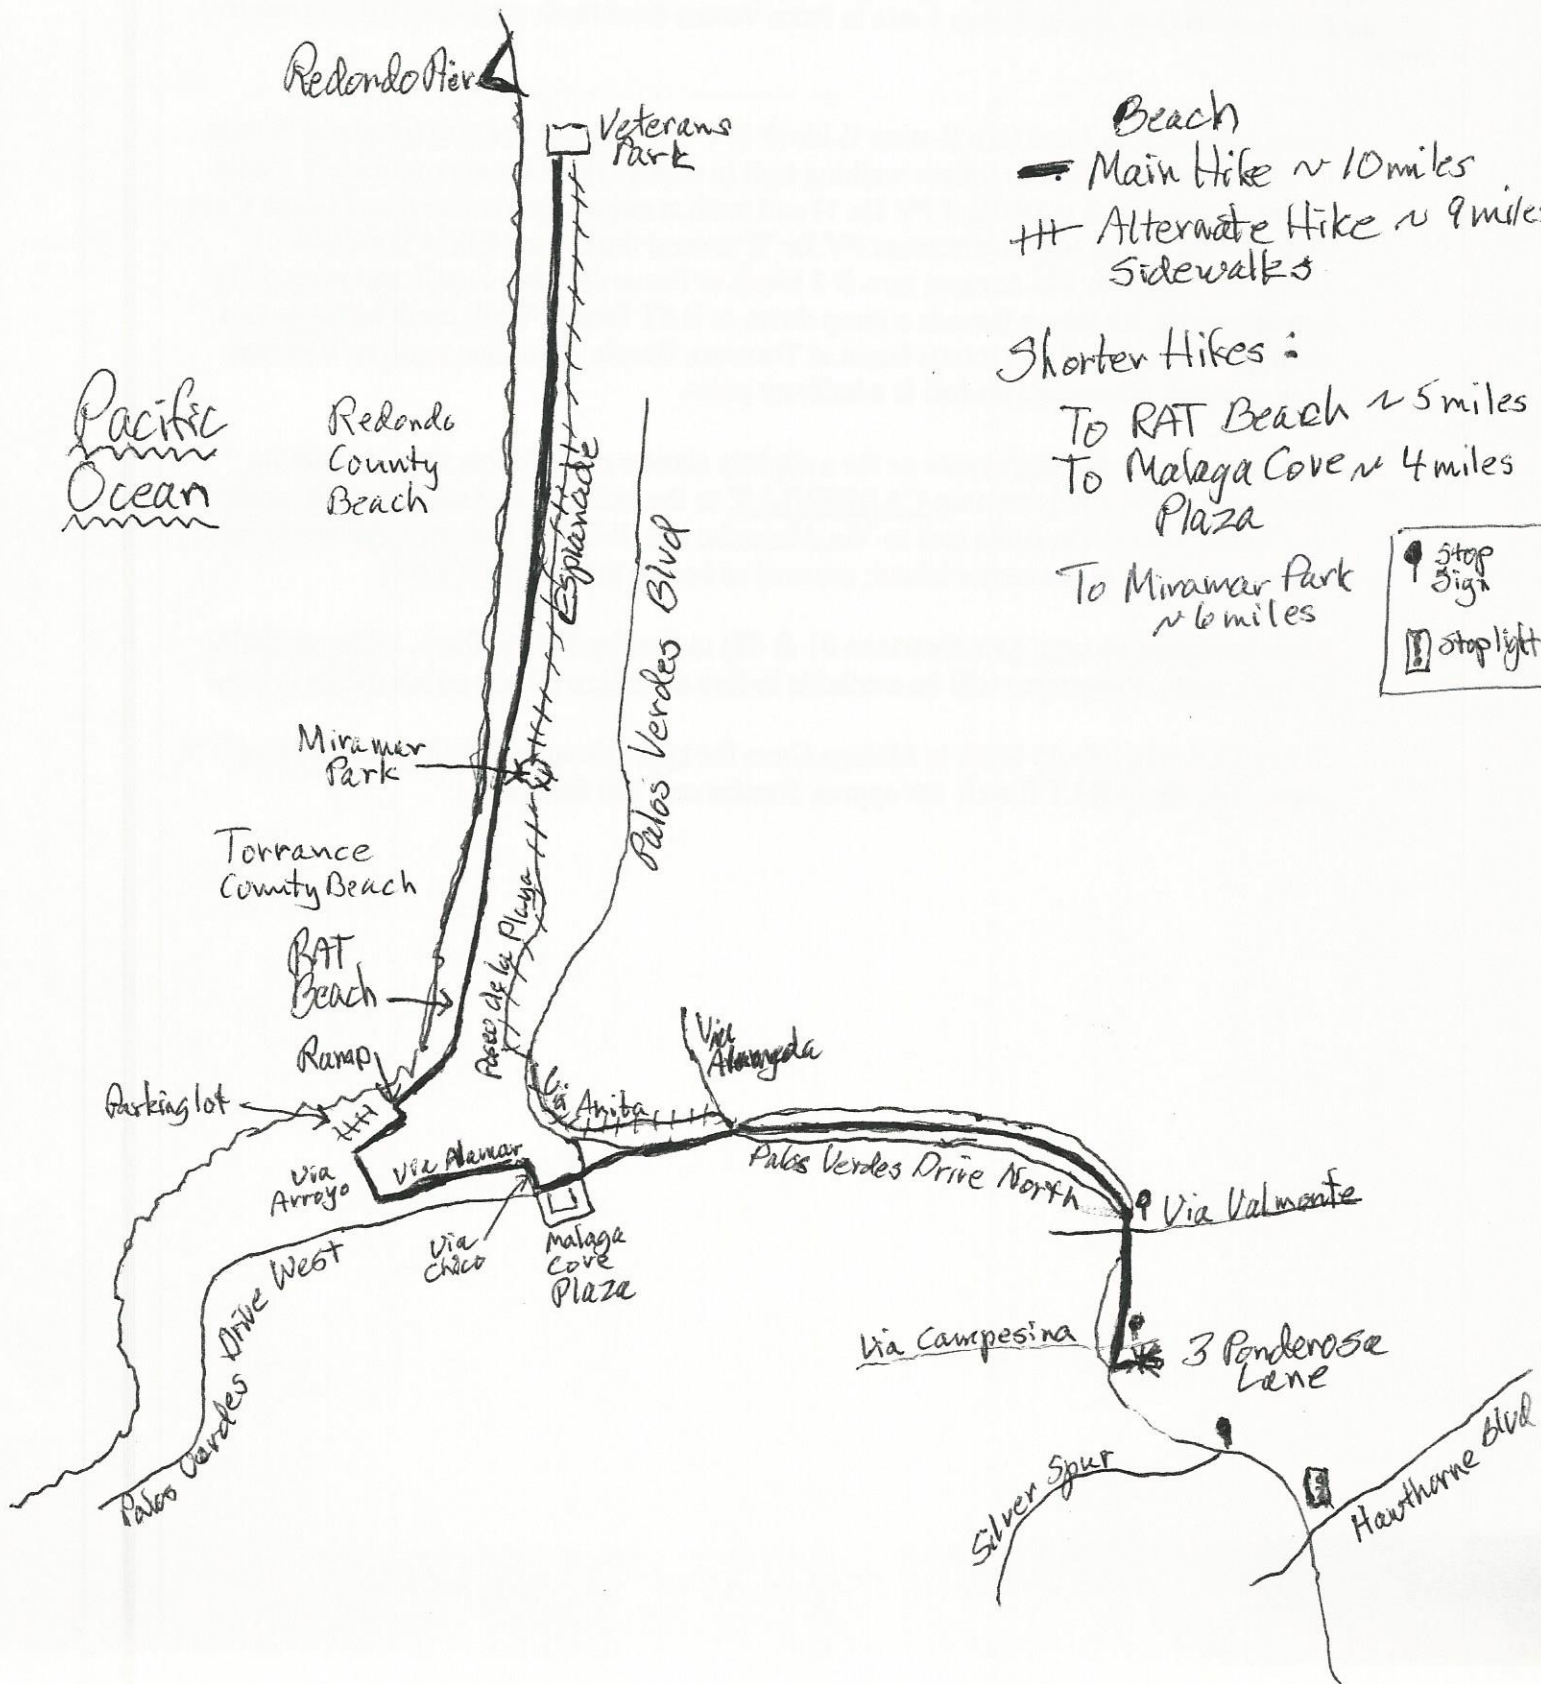 Redondo Pier
Veterans
Park
Beach
Main Hike ~ 10 miles
Alternate Hike ~ 9 miles
Sidewalks
Shorter Hikes:
To RAT Beach ~ 5 miles
To Malaga Cove ~ 4 miles
Plaza
To Miramar Park
~ 6 miles
Stop
Sign
Stoplight
Pacific
Ocean
Redondo
County
Beach
Esplanade
Palos Verdes Blvd
Miramar
Park
Torrance
County Beach
RAT
Beach
Paseo de la Playa
Ramp
Parking lot
Via
Anita
Via Alamar
Via
Arroyo
Via
Chico
Malaga
Cove
Plaza
Palos Verdes Drive North
Via Valmonte
Palos Verdes Drive West
Via Campesina
3 Ponderosa
Lane
Silver Spur
Hawthorne Blvd